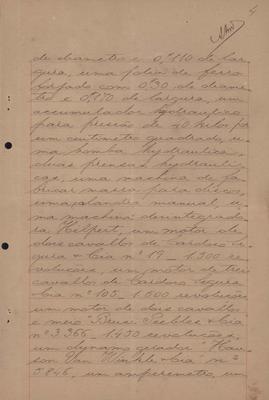 4
de diametro e 0,m110 de lar-
gura, uma polia de ferro
forjado com 0,30 de diame-
tro e 0,170 de largura, um
accumulador hydraulico
para pressão de 40 kilos p.r
um centimetro quadrado, u-
ma bomba hydraulica,
duas prensas hydrauli-
cas, uma machina de fa-
bricar massa para discos,
uma manual, u-
ma machina desintegrado-
ra um motor de
dois cavallos de Cardoso Se-
gura & Cia nº 19 - 1.500 re-
voluções, um motor de trez
cavallos de Cardoso Segura
& Cia nº 105 - 1.500 revoluções
um motor de dois cavallos
e meio Bruce Peebles & Cia
nº 3.366 - 1.450 revoluções,
um dynamo gerador "Han-
son Van Winkle & Cia" nº
5.846, um amperimetro, um